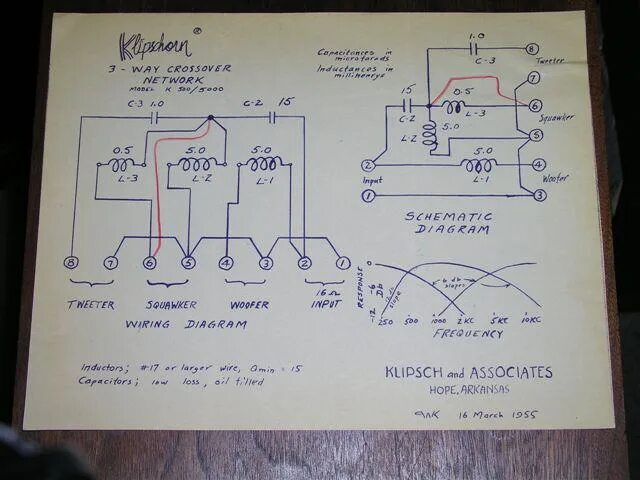 Klipschorn ®
3-WAY CROSSOVER
NETWORK
MODEL K 500/5000
Capacitances in
microfarads
Inductances in
millihenrys
C-3 1.0
C-2 15
0.5
L-3
5.0
L-2
5.0
L-1
8 7 6 5 4 3 2 1
TWEETER SQUAWKER WOOFER 16Ω INPUT
WIRING DIAGRAM
1.0
C-3
8
Tweeter
7
15
C-2
0.5
L-3
6
Squawker
L-2
5.0
5
2
5.0
L-1
4
Input
Woofer
1
3
SCHEMATIC
DIAGRAM
RESPONSE
Db
0
-6
-12
12 db
slope
6 db
slopes
250 500 1000 2KC 5KC 10KC
FREQUENCY
Inductors; #17 or larger wire, Qmin = 15
Capacitors; low loss, oil filled
KLIPSCH and ASSOCIATES
HOPE, ARKANSAS
16 March 1955